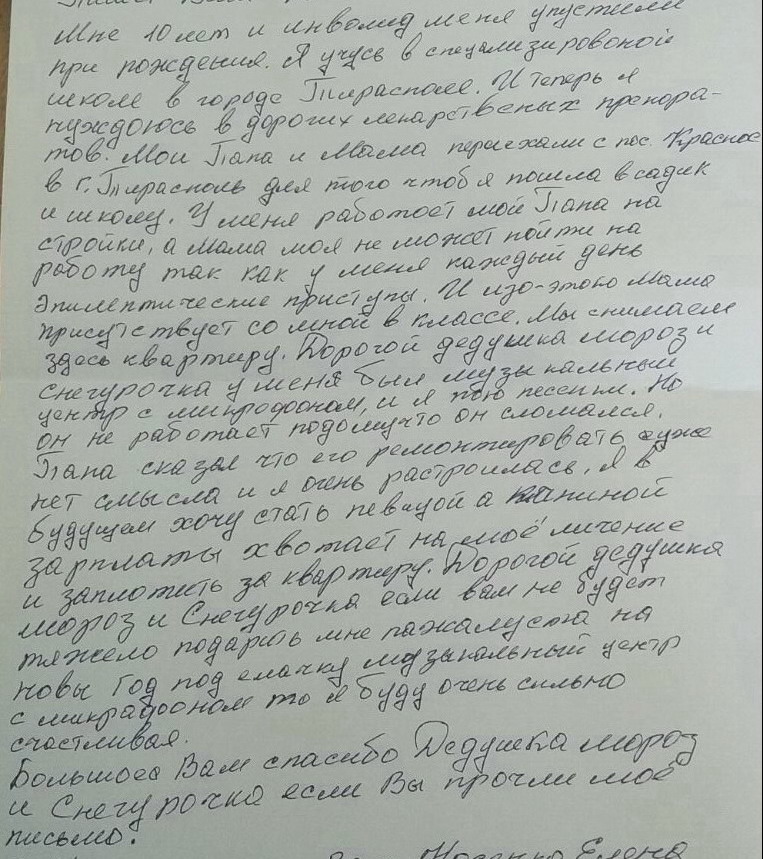 Мне 10 лет и инволид меня упустили
при рождения. Я учусь в спецализировоной
школе в городе Тирасполе. И теперь я
нуждоюсь в дорогих лекарственых препора-
тов. Мои Папа и Мама переехали с пос. Красное
в г. Тирасполь для того чтоб я пошла в садик
и школу. У меня работает мой Папа на
стройки, а Мама моя не может пойти на
работу так как у меня каждый день
эпилептические приступы. И изо-этого Мама
присутствует со мной в классе. Мы снимаем
здесь квартиру. Дорогой дедушка мороз и
снегурочка у меня был музыкальный
центр с микродооном, и я пою песенки. Но
он не работает подомучто он сломался.
Папа сказал что его ремонтировать уже
нет смысла и я очень растроилась. Я в
будущем хочу стать певицой а папиной
зарплаты хвотает на моё личение
и заплотить за квартиру. Дорогой дедушка
мороз и Снегурочка если вам не будет
тяжело подарить мне пажалуста на
новы Год под елачку музыкальный центр
с микрадооном то я буду очень сильно
счастливая.
Большоеа Вам спасибо Дедушка мороз
и Снегурочка если Вы прочли моё
письмо.
Елена